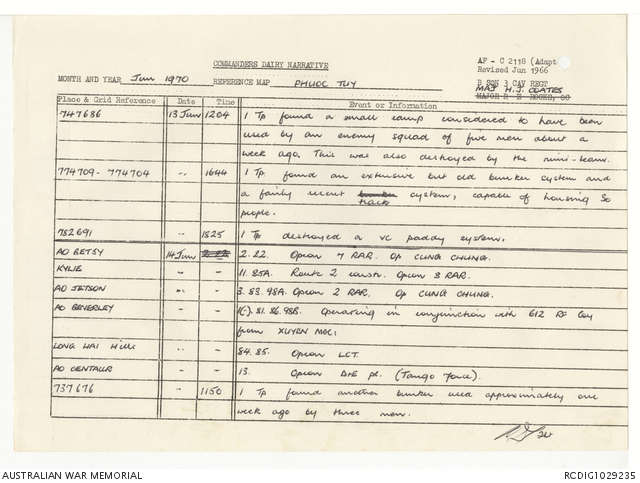 COMMANDERS DAIRY NARRATIVE
AF - C 2118 (Adapt
Revised Jun 1966
MONTH AND YEAR Jun 1970 REFERENCE MAP PHUOC TUY
B SQN 3 CAV REGT
MAJ H.J. COATES
MAJOR
Place & Grid Reference Date Time Event or Information
747686 13 Jun 1204 1 Tp found a small camp considered to have been
used by an enemy squad of five men about a
week ago. This was also destroyed by the mini-team.
774709 - 774704 " 1644 1 Tp found an extensive but old bunker system and
a fairly recent bunker system, capable of housing 50
track
people.
782691 " 1825 1 Tp destroyed a VC paddy system.
AO BETSY 14 Jun 2.22. Opcon 7 RAR. Op CUNG CHUNG.
KYLIE " - 11.85A. Route 2 constr. Opcon 8 RAR.
AO JETSON " - 3.83.98A. Opcon 2 RAR. Op CUNG CHUNG.
AO BEVERLEY - - 1(-).81.86.98B. Operating in conjunction with 612 RF Coy
from XUYEN MOC.
LONG HAI Hills " - 84.85. Opcon LCT.
AO CENTAUR - - 13. Opcon D&E pl. (Tango Force).
737676 - 1150 1 Tp found another bunker used approximately one
week ago by three men.
AUSTRALIAN WAR MEMORIAL RCDIG1029235